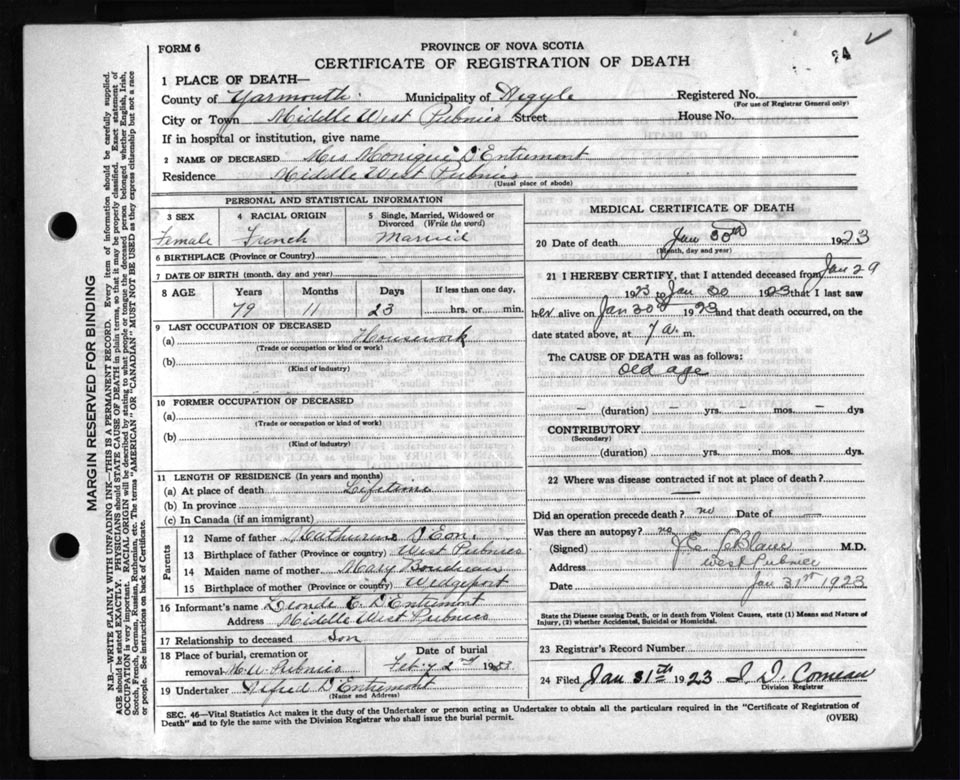 FORM 6
PROVINCE OF NOVA SCOTIA
CERTIFICATE OF REGISTRATION OF DEATH
1 PLACE OF DEATH—
County of Yarmouth Municipality of Argyle Registered No.
(For use of Registrar General only)
City or Town Middle West Pubnico Street House No.
If in hospital or institution, give name
2 NAME OF DECEASED Mrs Monique D'Entremont
Residence Middle West Pubnico
(Usual place of abode)
PERSONAL AND STATISTICAL INFORMATION
3 SEX 4 RACIAL ORIGIN 5 Single, Married, Widowed or Divorced (Write the word)
Female French Married
6 BIRTHPLACE (Province or Country)
7 DATE OF BIRTH (month, day and year)
8 AGE Years Months Days If less than one day,
79 11 23 hrs. or min.
9 LAST OCCUPATION OF DECEASED
(a) Housework
(Trade or occupation or kind or work)
(b)
(Kind of industry)
10 FORMER OCCUPATION OF DECEASED
(a)
(Trade or occupation or kind of work)
(b)
(Kind of industry)
11 LENGTH OF RESIDENCE (In years and months)
(a) At place of death Lifetime
(b) In province
(c) In Canada (if an immigrant)
Parents
12 Name of father D'Eon
13 Birthplace of father (Province or country) West Pubnico
14 Maiden name of mother Mary Boudreau
15 Birthplace of mother (Province or country) Wedgeport
16 Informant's name D'Entremont
Address Middle West Pubnico
17 Relationship to deceased Son
18 Place of burial, cremation or removal M.W. Pubnico
Date of burial
Feb'y 2nd 1923
19 Undertaker Alfred D'Entremont
(Name and Address)
MEDICAL CERTIFICATE OF DEATH
20 Date of death Jan 30th 1923
(Month, day and year)
21 I HEREBY CERTIFY, that I attended deceased from Jan 29
1923 to Jan 30 1923 that I last saw
her alive on Jan 30 1923 and that death occurred, on the
date stated above, at 7 a. m.
The CAUSE OF DEATH was as follows:
old age
– (duration) – yrs. – mos. – dys
CONTRIBUTORY
(Secondary)
(duration) yrs. mos. dys
22 Where was disease contracted if not at place of death?
—
Did an operation precede death? no Date of —
Was there an autopsy? no
(Signed) LeBlanc M.D.
Address West Pubnico
Date Jan 31st 1923
State the Disease causing Death, or in death from Violent Causes, state (1) Means and Nature of
Injury, (2) whether Accidental, Suicidal or Homicidal.
23 Registrar's Record Number
24 Filed Jan 31th 1923 Comeau
Division Registrar
SEC. 46—Vital Statistics Act makes it the duty of the Undertaker or person acting as Undertaker to obtain all the particulars required in the "Certificate of Registration of
Death" and to fyle the same with the Division Registrar who shall issue the burial permit.
(OVER)
MARGIN RESERVED FOR BINDING
N.B.—WRITE PLAINLY WITH UNFADING INK—THIS IS A PERMANENT RECORD. Every item of information should be carefully supplied.
AGE should be stated EXACTLY. PHYSICIANS should STATE CAUSE OF DEATH in plain terms, so that it may be properly classified. Exact statement of
OCCUPATION is very important. RACIAL ORIGIN will be described by stating to what people or tongue the deceased person belonged whether English, Irish,
Scotch, French, German, Russian, Ruthenian, etc. The terms "AMERICAN" OR "CANADIAN" MUST NOT BE USED as they express citizenship but not a race
or people. See instructions on back of Certificate.